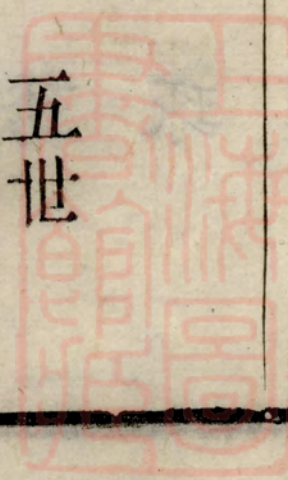 五世
上海圖
書館藏